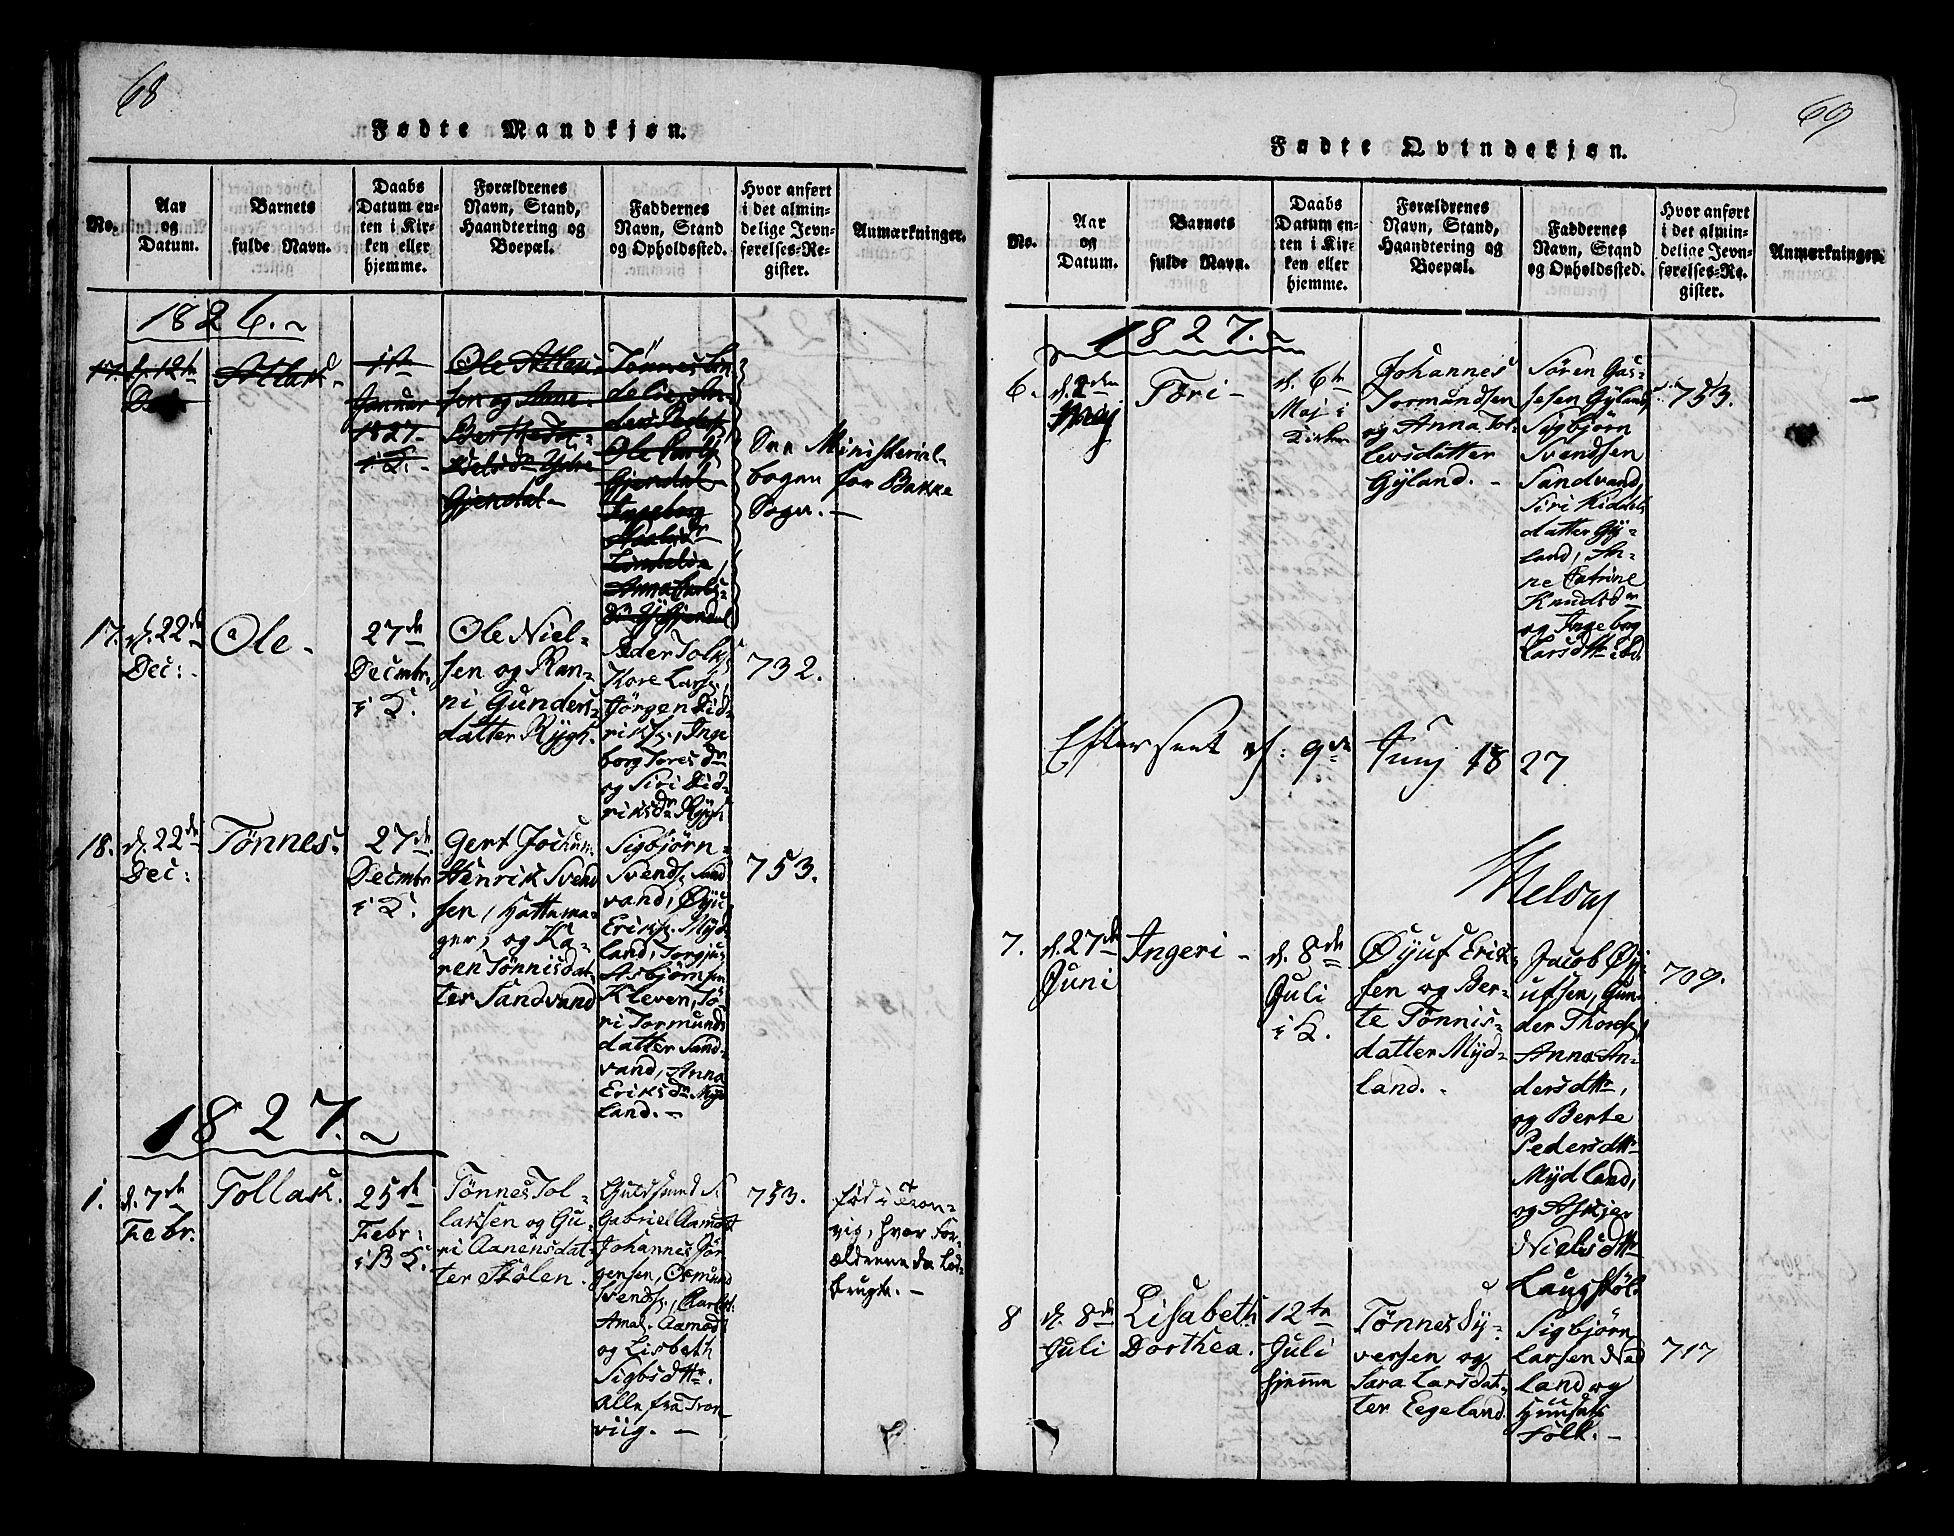 68
Fødte Mandkjøn.
No.
Aar
og
Datum.
Barnets
fulde Navn.
Daabs
Datum en-
ten i Kir-
ken eller
hjemme.
Forældrenes
Navn, Stand,
Haandtering og
Boepæl.
Faddernes
Navn, Stand
og Opholdssted.
Hvor anført
i det almin-
delige Jevn-
førelses-Re-
gister.
Anmærkninger.
1826.
17. d. 12te
Atlak
1ste
Januar
1827
i K.
Ole Atlak-
sen og Anne
Berthe
Nielsdr Ydre
Gjendal
Tønnes Lin-
delien
Ole
Gjendal
Ingeborg
Lindelie,
Anna
Gjendal
See Ministerial-
bogen for Bakke
Sogn.
17. d. 22de
Dec:
Ole
27de
Decmbr.
i K.
Ole Niel-
sen og Ran-
ni Gunders-
datter Rygh.
Peder Tolks.
Tore Lars.,
Jörgen Did-
riks., Inge
borg Toresdr
og Siri Did-
riksdr Rygh
732.
18. d. 22de
Dec:
Tönnes
27de
Decmbr
i K.
Gert Jochum
Henrik Svend
sen, Hattema-
ger, og Ka-
ren Tönnisdat-
ter Sandvand
Sigbjörn
Svends. Sand
vand, Øyu
Eriks. Myd
land, Torgjus
Asbjörnsen
Kleven, To-
ri Tormunds
datter Sand-
vand, Anna
Eriksdr Myd
land.
753.
1827.
1. d. 7de
Febr.
Tollak
25de
Febr:
i B K.
Tönnes Tol-
laksen og Gu-
ri Aanensdat-
ter Stölen.
Gabriel Aamodt
Johannes Jör
gensen, Osmund
Svends.,
Amal. Aamodt
og Lisbeth
Sigbsdttr.
Alle fra Tron-
viig.
753.
fød i Tron-
vig, hvor For-
ældrene da
brugte.
69
Fødte Qvindekjøn.
No.
Aar
og
Datum.
Barnets
fulde Navn.
Daabs
Datum en-
ten i Kir-
ken eller
hjemme.
Forældrenes
Navn, Stand,
Haandtering og
Boepæl.
Faddernes
Navn, Stand
og Opholdssted.
Hvor anført
i det almin-
delige Jevn-
førelses-Re-
gister.
Anmærkninger.
1827.
6. d. 2den
Maj
Tori
d. 6te
Maj i
Kirken
Johannes
Tormundsen
og Anna Tor-
levsdatter
Gyland.
Sören Gas-
sesen Gyland,
Sigbjörn
Svendsen
Sandvand,
Siri Kiddels
datter Gy-
land, An-
ne Catrine
Knudsdr
og Ingebog
Larsdttr ibd.
753.
Efterseet d: 9de Junj 1827
7. d. 27de
Juni
Ingeri
d. 8de
Juli
i K.
Øyuf Erik-
sen og Ber-
te Tönnis-
datter Myd-
land.
Jacob Øy-
ufsen, Gun-
der Thores.,
Anna An-
dersdttr,
og Berte
Pedersdttr
Mydland,
og Askjer
Nielsdttr
Laugstöl
709.
8 d. 8de
Juli
Lisabeth
Dorthea.
12te
Juli
hjemme
Tönnes Sy-
versen og
Sara Larsdat-
ter Eegeland
Sigbjörn
Larsen Ned
land og
Huusets
Folk.
717